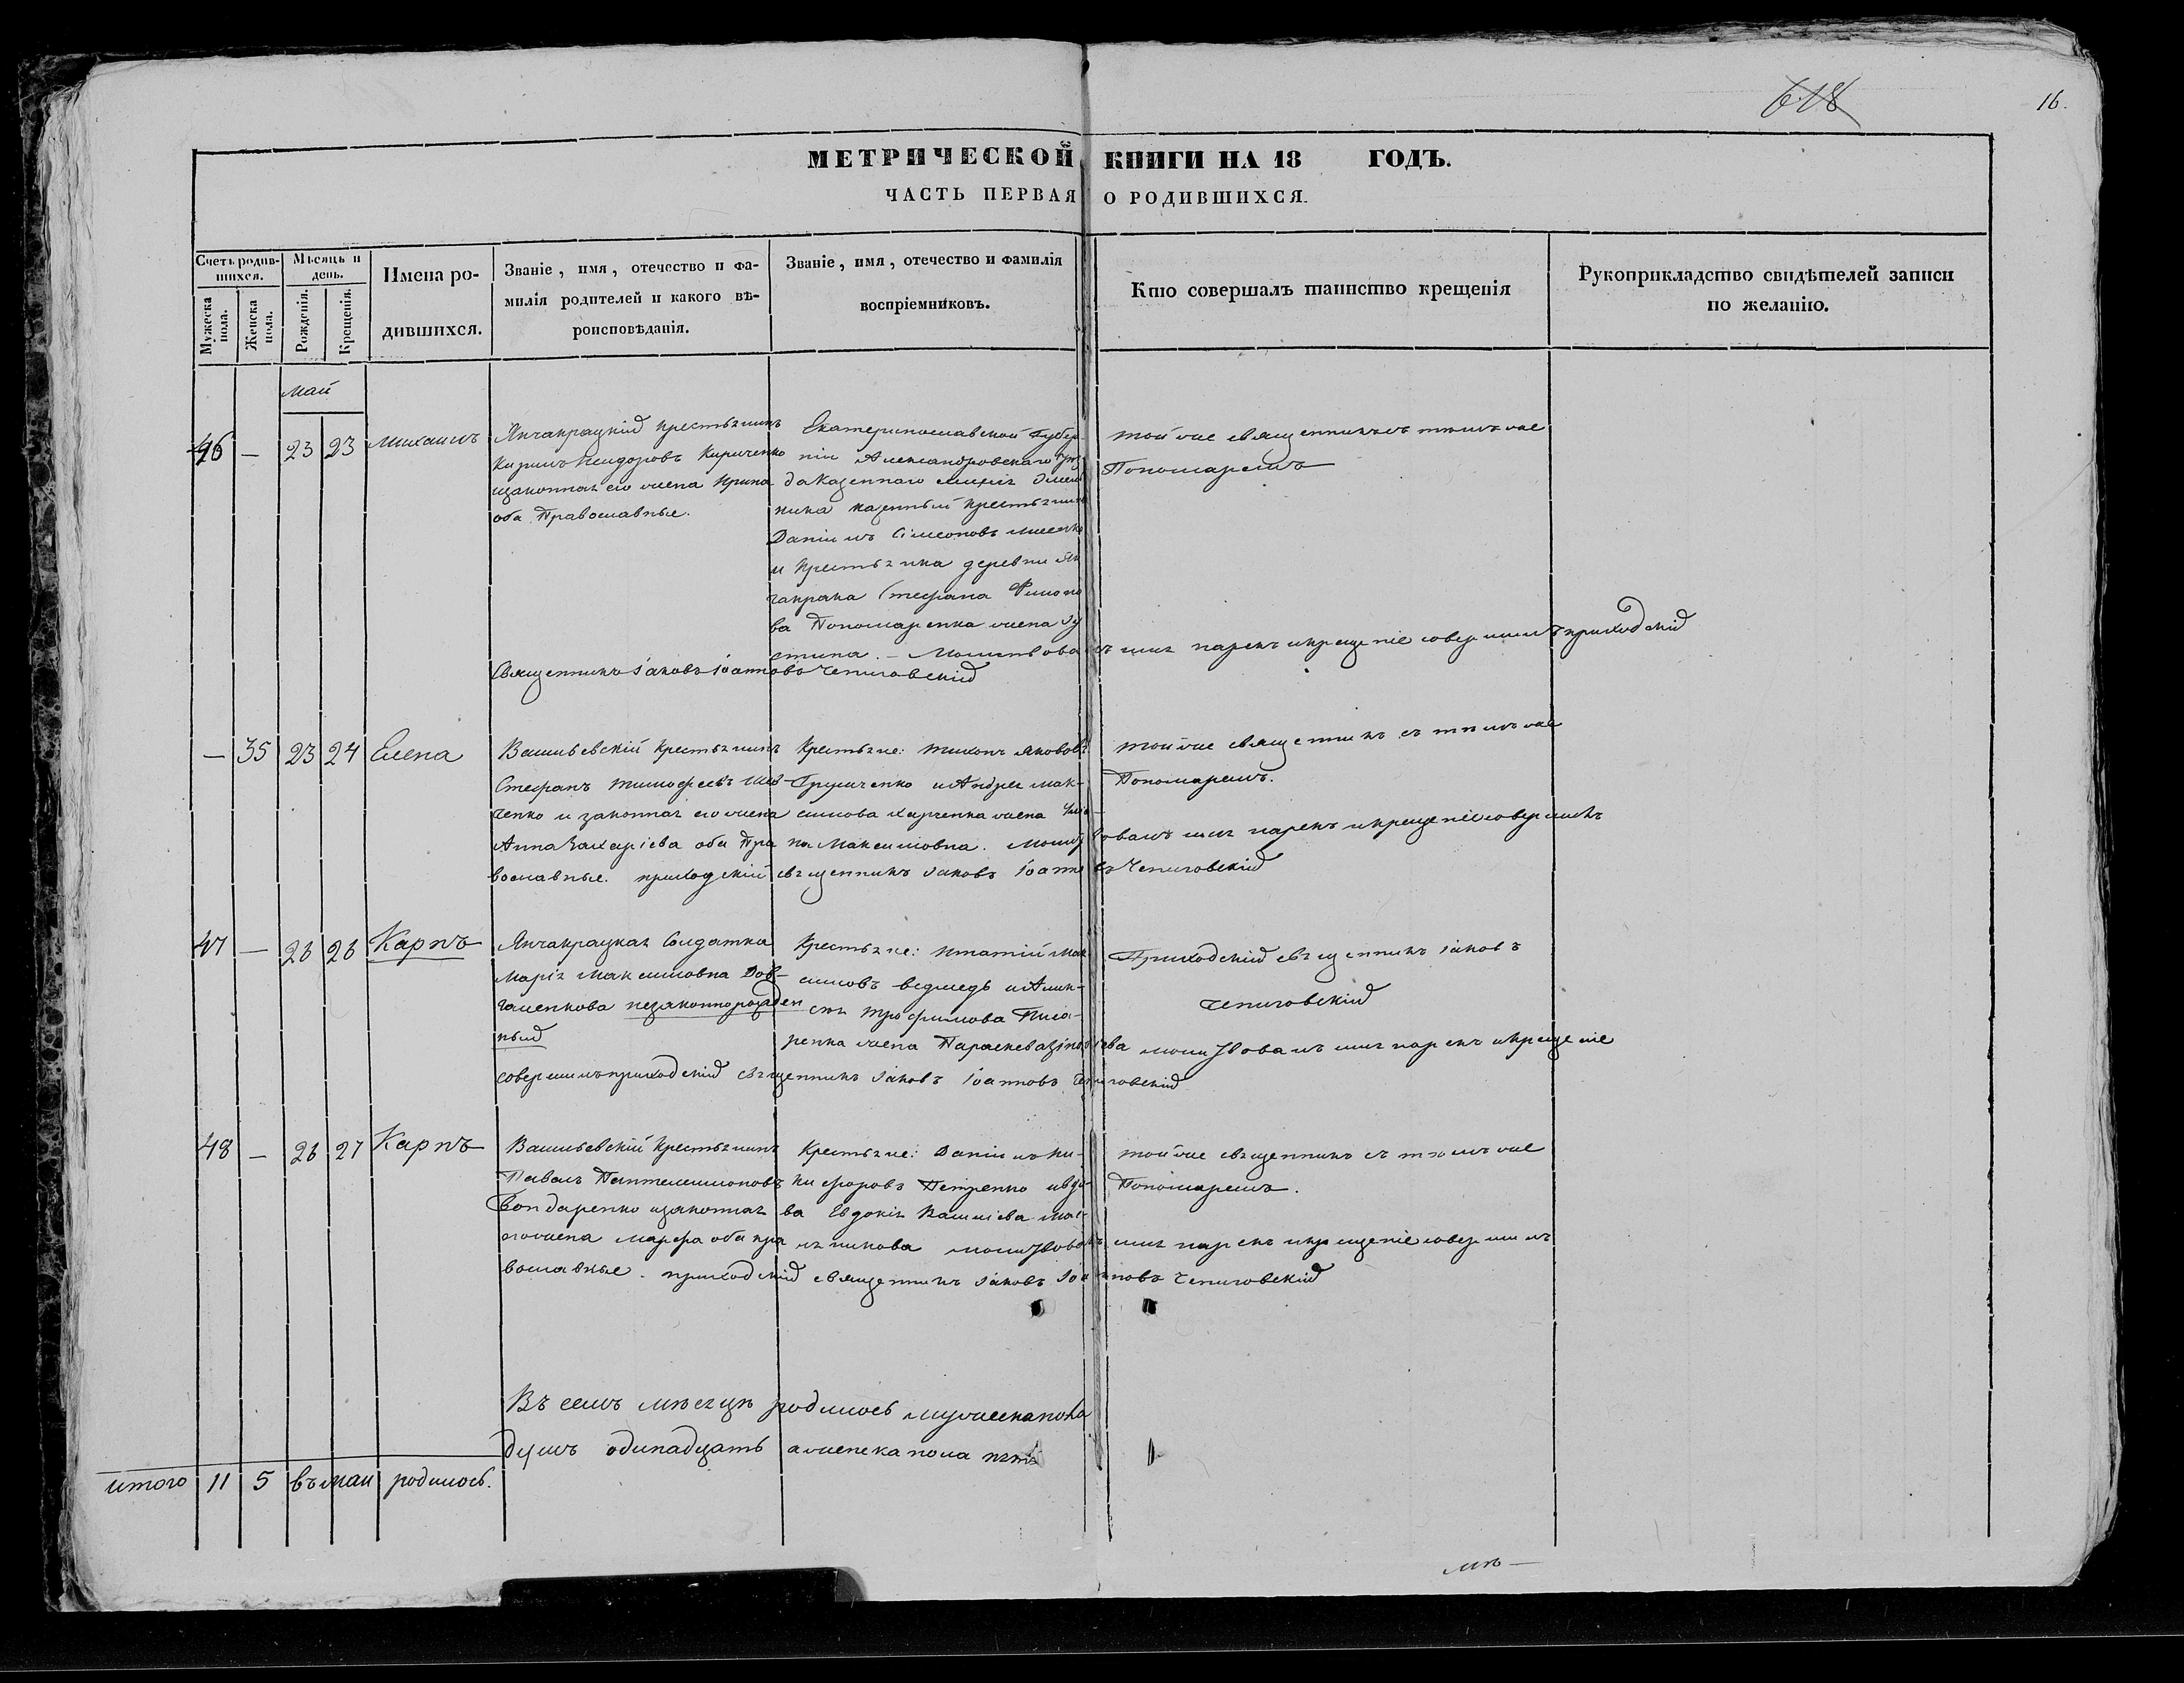 618
16.
МЕТРИЧЕСКОЙ КНИГИ НА 18 ГОДЪ.
ЧАСТЬ ПЕРВАЯ О РОДИВШИХСЯ.
Счетъ родив-
шихся.
Мужеска пола.
Женска пола.
Мѣсяцъ и
день.
Рожденія.
Крещенія.
Имена ро-
дившихся.
Званіе, имя, отечество и фа-
милія родителей и какого вѣ-
роисповѣданія.
Званіе, имя, отечество и фамилія
воспріемниковъ.
Кто совершалъ таинство крещенія
Рукоприкладство свидѣтелей записи
по желанію.
май
46 — 23 23 Михаилъ
Янчакрацкій крестьянинъ
Кириллъ Исидоровъ Кириченко
изаконная его жена Ирина
оба Православные.
Екатеринославской Губер-
ніи Александровскаго
да Казеннаго
казенный крестьянинъ
Даніилъ Сімеоновъ
и крестьянка деревни Ян
чакрака Стефана Филипо
ва Пономаренка жена Іу
стина. — Молитвовалъ имя нарекъ икрещеніе совершилъ приходскій
Священникъ Іаковъ Іоанновъ Чепиговскій
той же священникъ съ тѣмъ же
Пономаремъ
— 35 23 24 Елена
Васильевскій Крестьянинъ
Стефанъ Тимофеевъ Шев-
ченко и законная его жена
Анна Захаріева оба Пра
вославные. приходскій священникъ Іаковъ Іоанновъ Чепиговскій
Крестьяне: Тихонъ Якововъ
Грущенко и Андрея Мак-
симова Харченка жена
на Максимовна. Молитвовалъ имя нарекъ икрещеніе совершилъ
той же священникъ съ тѣмъ же
Пономаремъ.
47 — 26 26 Карпъ
Янчакрацкая Солдатка
Марія Максимовна Дов-
галенкова незаконнорожден
ный
Крестьяне: Игнатій Мак
симовъ Ведмедь и Алек-
сея Трофимова Писа-
ренка жена Параскева Зіновіева молитвовалъ имя нарекъ икрещеніе
совершилъ приходскій священникъ Іаковъ Іоанновъ Чепиговскій
Приходскій священникъ Іаковъ
Чепиговскій
48 — 26 27 Карпъ
Васильевскій Крестьянинъ
Павелъ Пантелеимоновъ
Бондаренко изаконная
егожена Марфа оба пра
вославные. приходскій священникъ Іаковъ Іоанновъ Чепиговскій
Крестьяне: Даніилъ Ни-
кифоровъ Петренко ивдо-
ва Евдокія Василіева Мас-
ляникова молитвовалъ имя нарекъ икрещеніе совершилъ
той же священникъ съ тѣмъ же
Пономаремъ.
Въ семъ мѣсяцѣ родилось мужеска пола
душъ одинадцать а женска пола пять
итого 11 5 въ маи родилось.